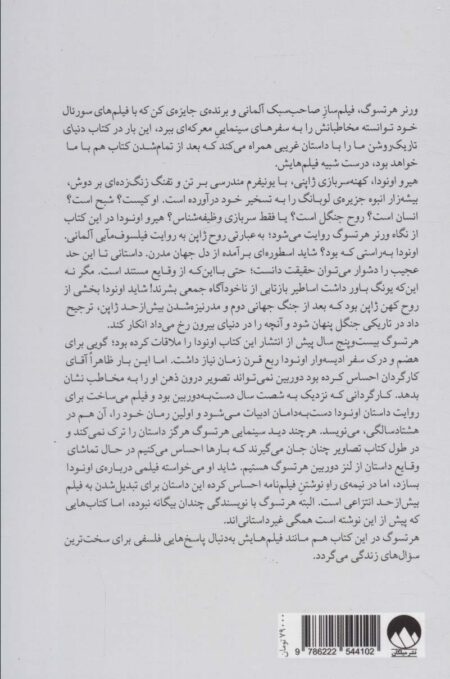 ورنر هرتسوگ، فیلم‌ساز صاحب‌سبک آلمانی و برنده‌ی جایزه‌ی کن که با فیلم‌های سورئال
خود توانسته مخاطبانش را به سفرهای سینمایی معرکه‌ای ببرد، این بار در کتاب دنیای
تاریک‌روشن ما را با داستان غریبی همراه می‌کند که بعد از تمام‌شدن کتاب هم با ما
خواهد بود، درست شبیه فیلم‌هایش.
هیرو اونودا، کهنه‌سربازی ژاپنی، با یونیفرم مندرسی بر تن و تفنگ زنگ‌زده‌ای بر دوش،
بیشه‌زار انبوه جزیره‌ی لوبانگ را به تسخیر خود درآورده است. او کیست؟ شبح است؟
انسان است؟ روح جنگل است؟ یا فقط سربازی وظیفه‌شناس؟ هیرو اونودا در این کتاب
از نگاه ورنر هرتسوگ روایت می‌شود؛ به‌عبارتی روح ژاپن به روایت فیلسوف‌مآبی آلمانی.
اونودا به‌راستی که بود؟ شاید اسطوره‌ای برآمده از دل جهان مدرن. داستانی تا این حد
عجیب را دشوار می‌توان حقیقت دانست؛ حتی بااین‌که از وقایع مستند است. مگر نه
این‌که یونگ باور داشت اساطیر بازتابی از ناخودآگاه جمعی بشرند! شاید اونودا بخشی از
روح کهن ژاپن بود که بعد از جنگ جهانی دوم و مدرنیزه‌شدن بیش‌ازحد ژاپن، ترجیح
داد در تاریکی جنگل پنهان شود و آنچه را در دنیای بیرون رخ می‌داد انکار کند.
هرتسوگ بیست‌وپنج سال پیش از انتشار این کتاب اونودا را ملاقات کرده بود؛ گویی برای
هضم و درک سفر ادیسه‌وار اونودا ربع قرن زمان نیاز داشت. اما این بار ظاهراً آقای
کارگردان احساس کرده بود دوربین نمی‌تواند تصویر درون ذهن او را به مخاطب نشان
بدهد. کارگردانی که نزدیک به شصت سال دست‌به‌دوربین بود و فیلم می‌ساخت برای
روایت داستان اونودا دست‌به‌دامان ادبیات می‌شود و اولین رمان خود را، آن هم در
هشتادسالگی، می‌نویسد. هرچند دید سینمایی هرتسوگ هرگز داستان را ترک نمی‌کند و
در طول کتاب تصاویر چنان جان می‌گیرند که بارها احساس می‌کنیم در حال تماشای
وقایع داستان از لنز دوربین هرتسوگ هستیم. شاید او می‌خواسته فیلمی درباره‌ی اونودا
بسازد، اما در نیمه‌ی راهِ نوشتنِ فیلم‌نامه احساس کرده این داستان برای تبدیل‌شدن به فیلم
بیش‌ازحد انتزاعی است. البته هرتسوگ با نویسندگی چندان بیگانه نبوده، اما کتاب‌هایی
که پیش از این نوشته است همگی غیرداستانی‌اند.
هرتسوگ در این کتاب هم مانند فیلم‌هایش به‌دنبال پاسخ‌هایی فلسفی برای سخت‌ترین
سؤال‌های زندگی می‌گردد.
۷۹۰۰۰ تومان
9 786222 544102
نشر میلکان